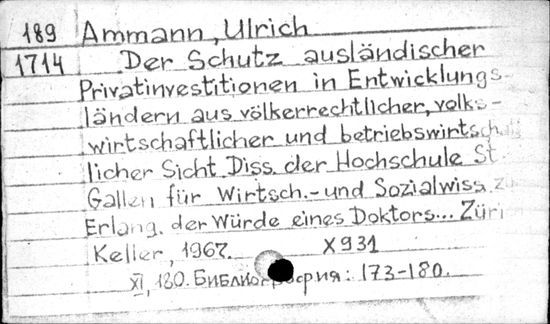 189 Ammann, Ulrich
1714 Der Schutz ausländischer
Privatinvestitionen in Entwicklungs-
ländern aus völkerrechtlicher, volks-
wirtschaftlicher und betriebswirtschaft-
licher Sicht. Diss. der Hochschule St.
Gallen für Wirtsch.- und Sozialwiss. zur
Erlang. der Würde eines Doktors... Züri
Keller, 1967. X931
XI, 180. Библиография: 173-180.